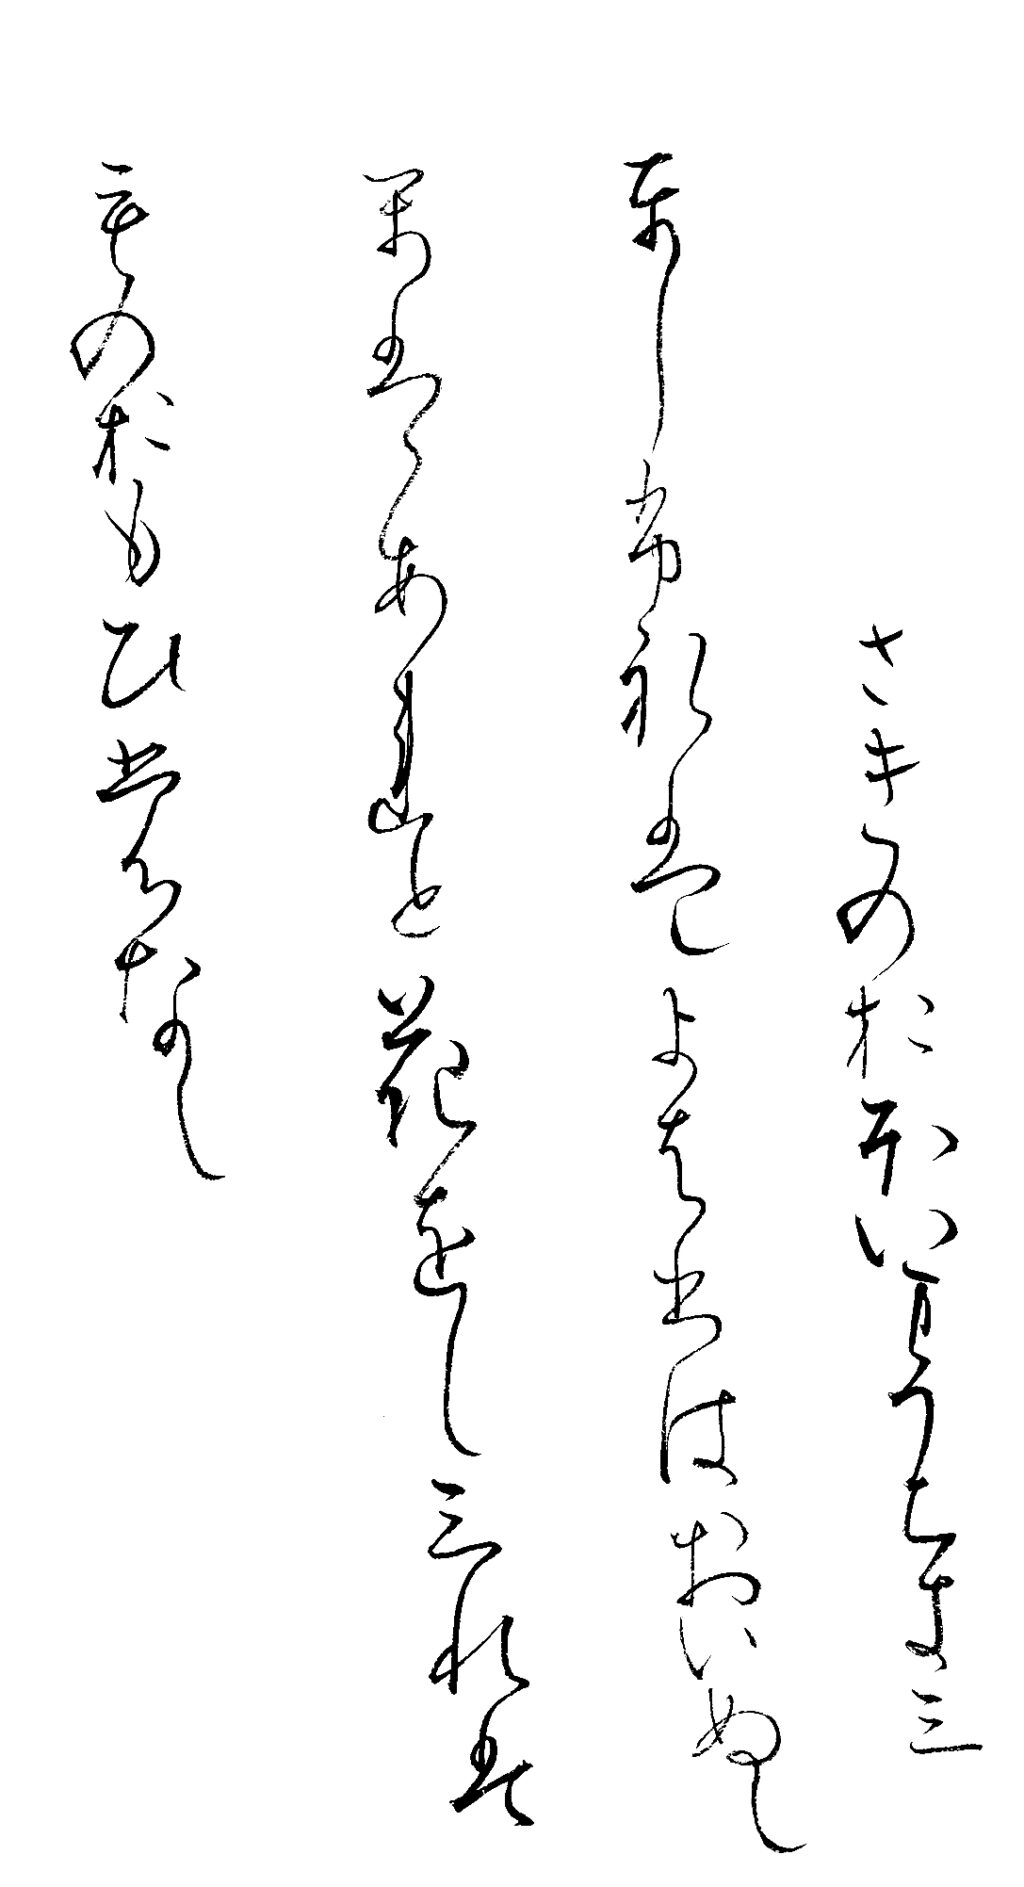 さきのおほいまうちきみ
としふれはよはひはおいぬし
かはあれと花をしみれは
ものおもひもなし